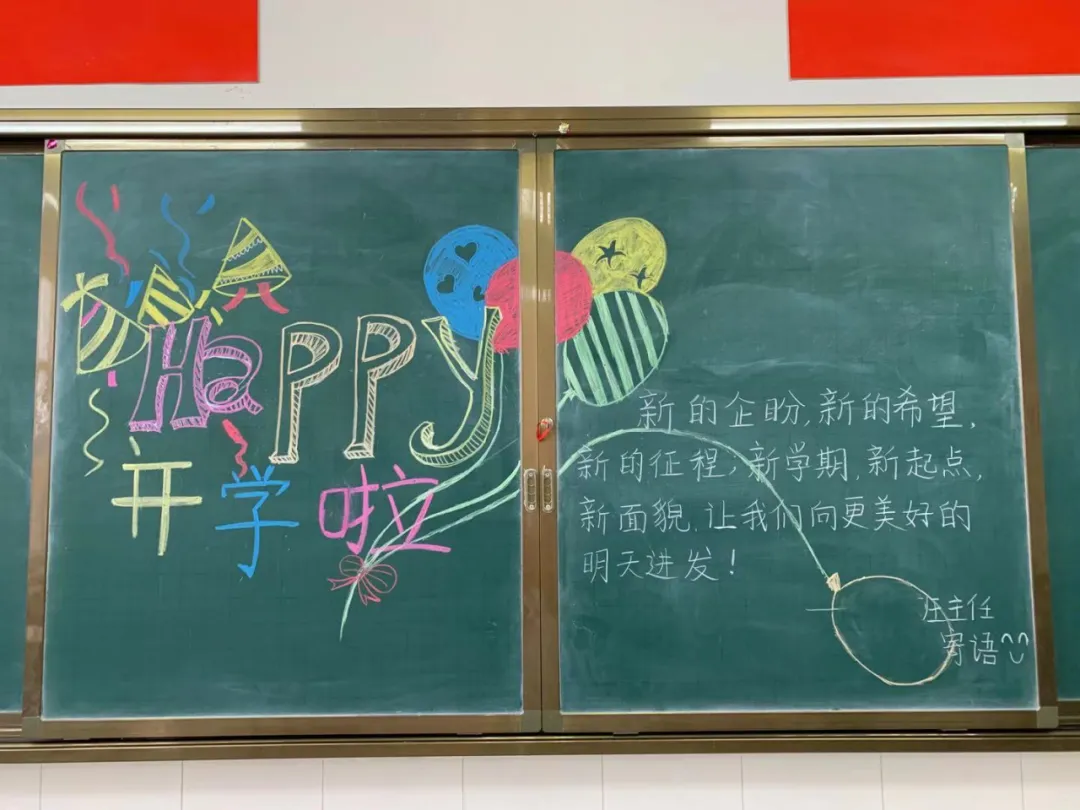 Happy
开学啦
新的企盼,新的希望,
新的征程,新学期,新起点,
新面貌,让我们向更美好的
明天进发!
汪主任
寄语